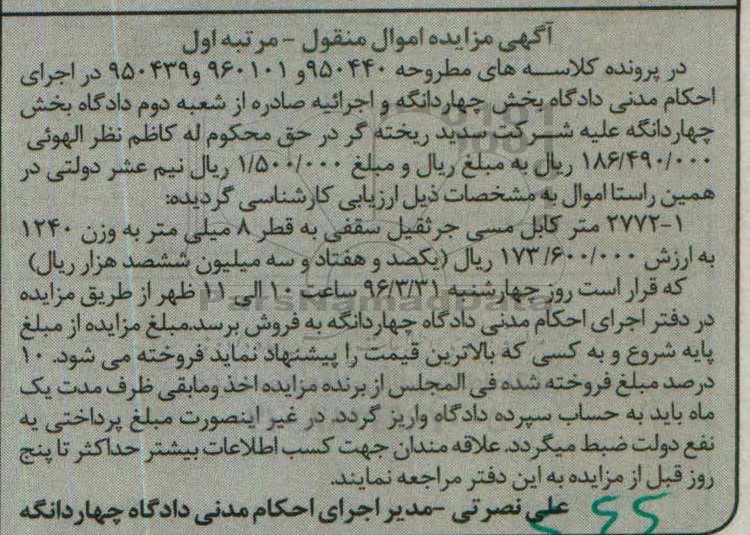 آگهی مزایده اموال منقول - مرتبه اول
در پرونده کلاسه های مطروحه ۹۵۰۴۴۰و ۹۶۰۱۰۱ و۹۵۰۴۳۹ در اجرای
احکام مدنی دادگاه بخش چهاردانگه و اجرائیه صادره از شعبه دوم دادگاه بخش
چهاردانگه علیه شرکت سدید ریخته گر در حق محکوم له کاظم نظر الهوئی
۱۸۶/۴۹۰/۰۰۰ ریال به مبلغ ریال و مبلغ ۱/۵۰۰/۰۰۰ ریال نیم عشر دولتی در
همین راستا اموال به مشخصات ذیل ارزیابی کارشناسی گردیده:
۱-۲۷۷۲ متر کابل مسی جرثقیل سقفی به قطر ۸ میلی متر به وزن ۱۲۴۰
به ارزش ۱۷۳/۶۰۰/۰۰۰ ریال (یکصد و هفتاد و سه میلیون ششصد هزار ریال)
که قرار است روز چهارشنبه ۹۶/۳/۳۱ ساعت ۱۰ الی ۱۱ ظهر از طریق مزایده
در دفتر اجرای احکام مدنی دادگاه چهاردانگه به فروش برسد.مبلغ مزایده از مبلغ
پایه شروع و به کسی که بالاترین قیمت را پیشنهاد نماید فروخته می شود. ۱۰
درصد مبلغ فروخته شده فی المجلس از برنده مزایده اخذ ومابقی ظرف مدت یک
ماه باید به حساب سپرده دادگاه واریز گردد. در غیر اینصورت مبلغ پرداختی به
نفع دولت ضبط میگردد. علاقه مندان جهت کسب اطلاعات بیشتر حداکثر تا پنج
روز قبل از مزایده به این دفتر مراجعه نمایند.
علی نصرتی -مدیر اجرای احکام مدنی دادگاه چهاردانگه
ParsNamadData